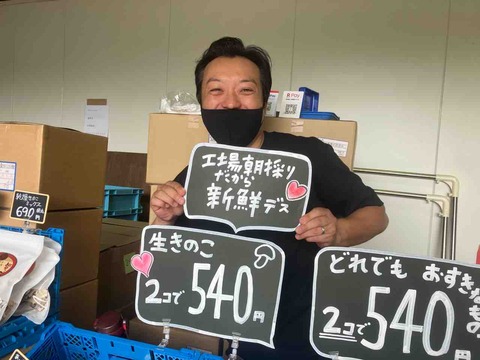 工場朝採り
だから
新鮮デス
生きのこ
2コで540円
どれでも おすきな
もの
2コで540円
690円
Pay